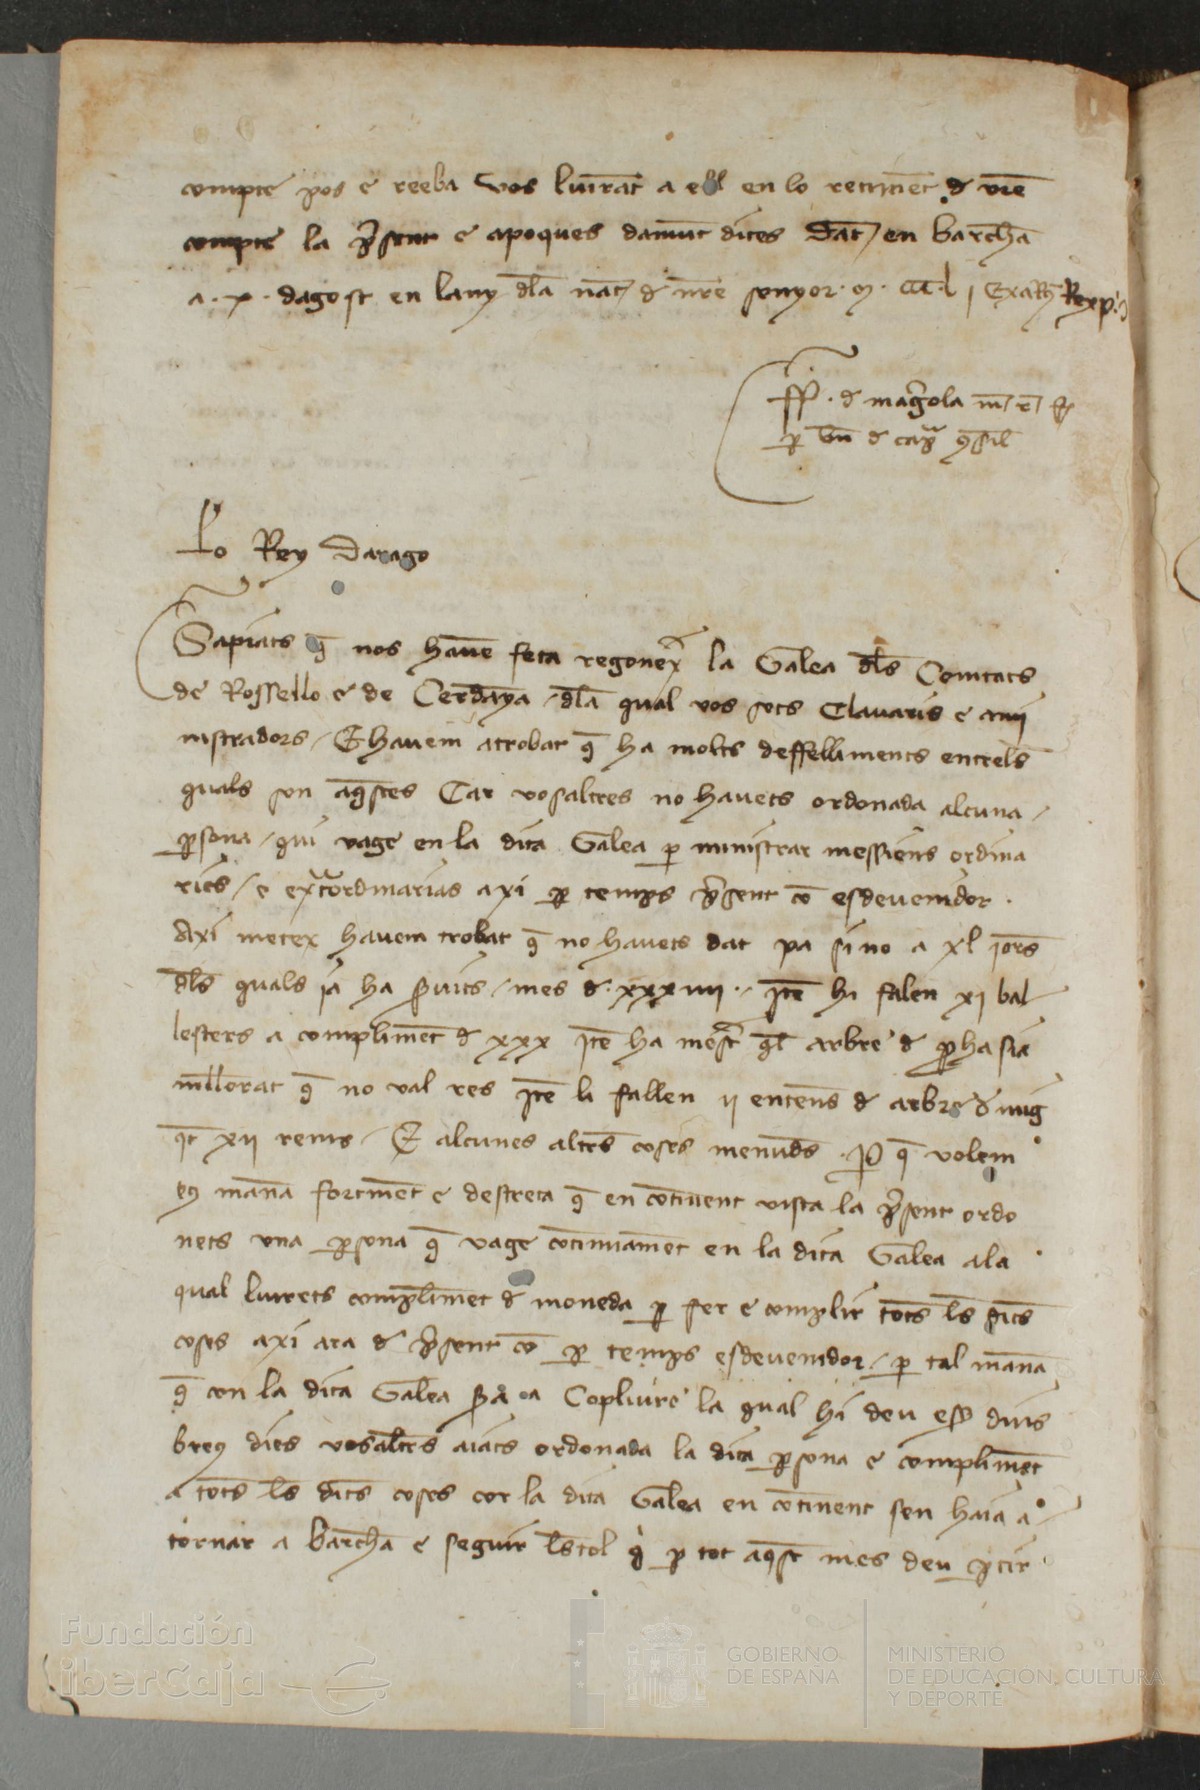 compte pos e reeba vos liurant a ell en lo retiment d vr̄e
compte la p̄sent e apoques damūt dites Dat̄ en barchā
a · x · dagost en lany dl̄a nat̄ d nr̄e senyor · m · ccc · l j Exam̄ Rex p·
ff · d magrola
p bn̄ d capr̄ 9sil
Lo Rey Darago
Sapiats q̄ nos havē feta regonex̄ la Galea dl̄s Comtats
de Rossello e de Cerdāya / dl̄a qual vos sots Clavaris e ami
nistradors / E havem atrobat q̄ ha molts deffelliments entrels
quals son aq̄stes Car vosaltres no havets ordonada alcuna /
p̱sona / qui vage en la dita Galea p̱ ministrar messions ordina
ries / e ext̄ordinarias axi p̱ temps p̄sent cō esdevenidor ·
Axi metex havem trobat q̄ no havets dat pa sino a xl jorn̄s
dl̄s quals ja ha s̄vits / mes d · xxxiiii · / Itē hi falen xi bal
lesters a complimēt d xxx Itē ha mest̄ ql̄ arbre d p̱ha sia
mīllorat q̄ no val res Itē li fallen ii entenēs d arbre d mig
Itē xii rems / E alcunes altrēs coses menudēs · P̱ q̄ volem
e9 manā fortmēt e destreta q̄ en cōtinent vista la p̄sent ordo
nets una p̱sona q̄ vage cōtinuamēt en la dita Galea ala
qual liurets complimēt d moneda p̱ fer e complir totēs lēs ditēs
coses axi ara d p̄sent cō p̱ temps esdevenidor / p̱ tal manā
q̄ con la dita Galea s̄a a Copliure la qual hi deu ess̄ dins
breu dies vosaltrēs aiats ordonada la dita p̱sona e complimēt
a totēs lēs ditēs coses cor la dita Galea en cōtinent sen haia a /
tornar a barchā e seguir lēstol q̄ p̱ tot aq̄st mes deu p̱tir ·
Fundación
iberCaja
GOBIERNO
DE ESPAÑA
MINISTERIO
DE EDUCACIÓN, CULTURA
Y DEPORTE